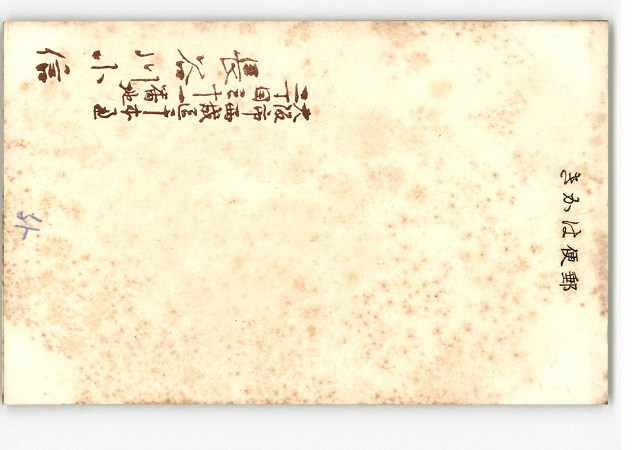 郵便はかき
大阪市西成区千本通
二丁目三十一番地
長谷川小信